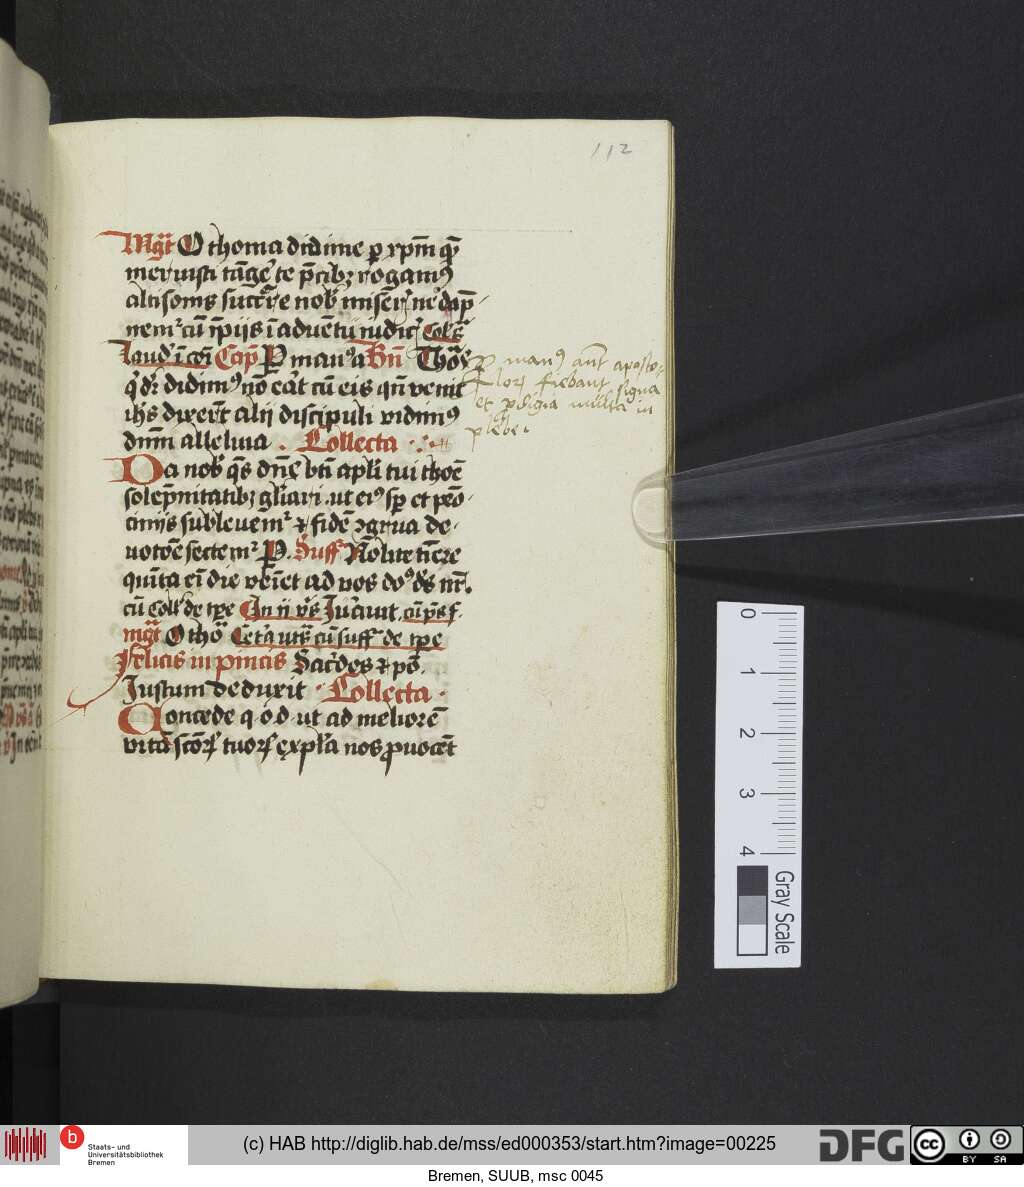 112
Mgt O thoma didime p xpm quē
meruisti tāgē te p̄cibz rogamꝰ
altisonis succ̄re nob̄ miseris ne dāp̄
nemꝰ cū īpijs ī aduētu iudic̄ Coll̄
laud̄ ī coī Cap̄ P manꝰ a Bn̄ Thōs
q̄ dr̄ didimꝰ nō ēat cū eis qn̄ venit
ih̄s dixer̄t alij discipuli vidimꝰ
dnm̄ alleluia . Collecta
Da nob̄ q̄s dn̄e bti apli tui thōe
solēpnitatibz gl̄iari ut eiꝰ sp̄ et p̄cō
cinijs subleuemꝰ & fidē ꝯgrua de
uotōe sectemꝰ P. Suff Nōlite tīēre
quīta eī die veīet ad vos do⁹ ds nr̄
cū Coll̄ de tp̄e In ij vs̄ Jucūt cū ps̄
mgt O thō Cetā utsͣ cū suff de tp̄e
Felicis in pincis Sac̄dos & pō
Justum deduxit . Collecta .
Concede q o d ut ad meliorē
vitā scōrꝫ tuorꝫ exp̄la nos ꝓuocēt
P manꝰ aūt aposto-
lorꝫ fiebant signa
et ꝓdigia multa in
plebe
0
1
2
3
4
Gray Scale
b
Staats- und
Universitätsbibliothek
Bremen
(c) HAB http://diglib.hab.de/mss/ed000353/start.htm?image=00225
DFG
cc
BY SA
Bremen, SUUB, msc 0045